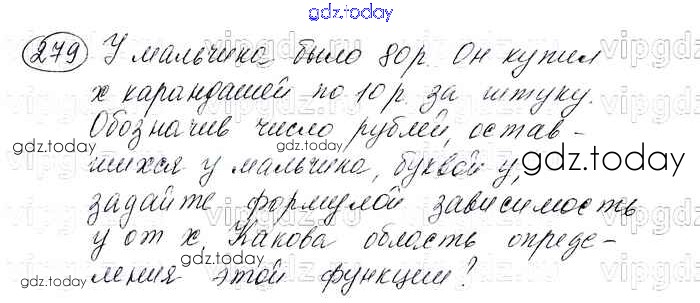 gdz.today
279 У мальчика было 80р. Он купил
x карандашей по 10р. за штуку.
Обозначив число рублей, остав-
gdz.today
шихся у мальчика, буквой y,
gdz.today
задайте формулой зависимость
y от x. Какова область опреде-
ления этой функции?
gdz.today
gdz.today